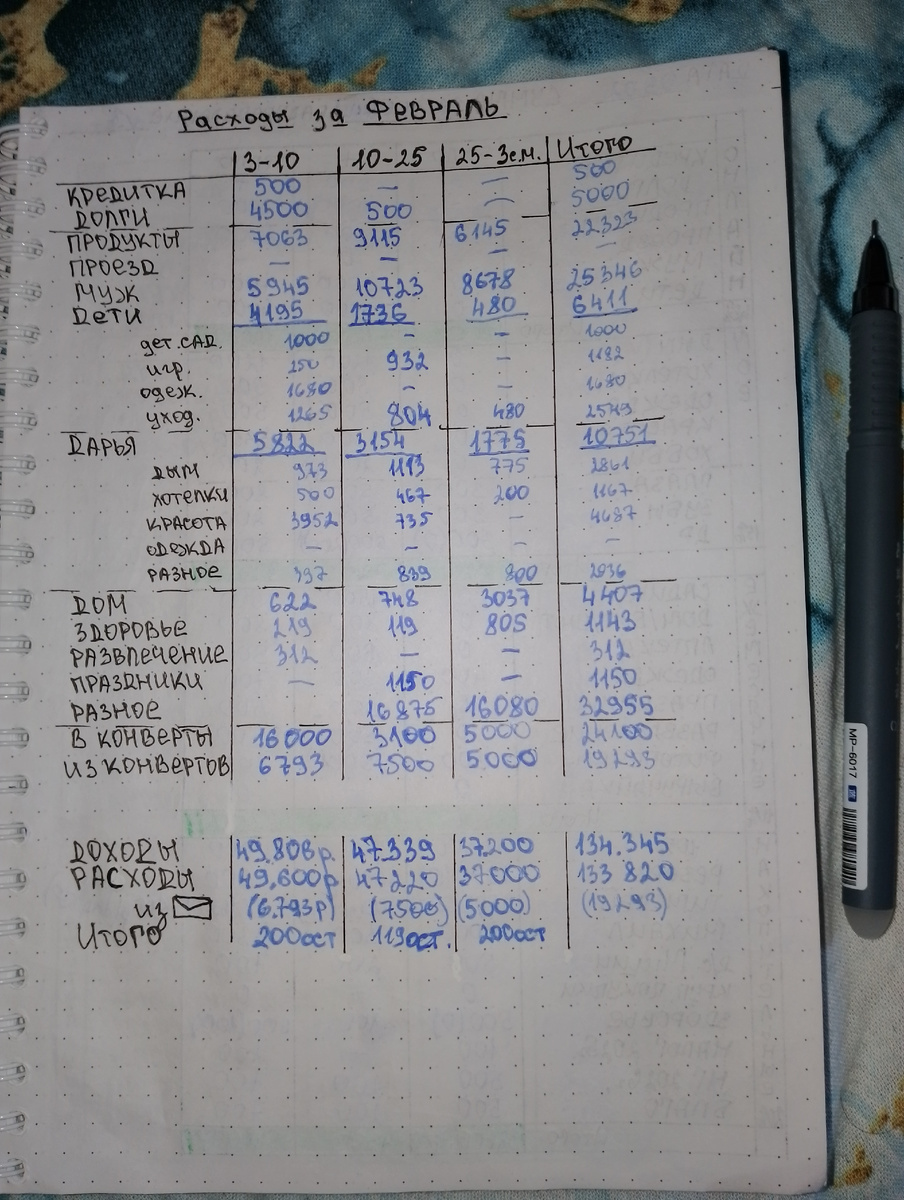 Расходы за ФЕВРАЛЬ
3-10 10-25 25-3ем. Итого
КРЕДИТКА 500 — — 500
ДОЛГИ 4500 500 — 5000
ПРОДУКТЫ 7063 9115 6145 22323
ПРОЕЗД — — — —
МУЖ 5945 10723 8678 25346
ДЕТИ 4195 1736 480 6411
дет.САД. 1000 - - 1000
игр. 250 932 - 1182
одеж. 1680 - - 1680
уход. 1265 804 480 2549
ДАРЬЯ 5822 3154 1775 10751
ДЫМ 973 1113 775 2861
ХОТЕЛКИ 500 467 200 1167
КРАСОТА 3952 735 - 4687
ОДЕЖДА - - - -
РАЗНОЕ 397 839 800 2036
ДОМ 622 748 3037 4407
ЗДОРОВЬЕ 219 119 805 1143
РАЗВЛЕЧЕНИЕ 312 — — 312
ПРАЗДНИКИ — 1150 — 1150
РАЗНОЕ 16875 16080 32955
В КОНВЕРТЫ 16000 3100 5000 24100
ИЗ КОНВЕРТОВ 6793 7500 5000 19293
ДОХОДЫ 49.806р. 47.339 37200 134.345
РАСХОДЫ 49.600р 47220 37000 133 820
из (6.793р) (7500) (5000) (19293)
Итого 200ост 119ост. 200ост
MP-6017